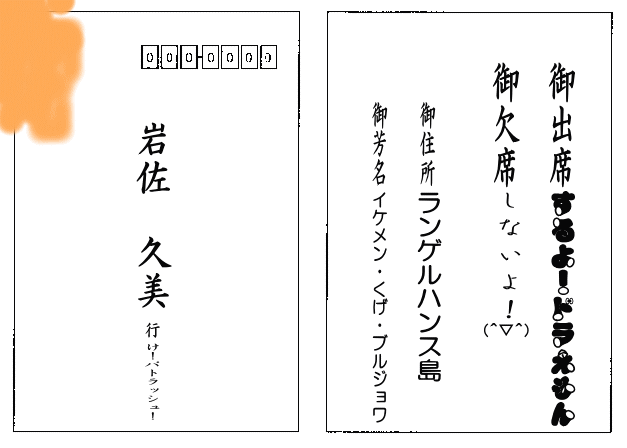 0000000
岩佐 久美 行け!パトラッシュ!
御出席するよ!ドラえもん
御欠席しないよ!(^▽^)
御住所ランゲルハンス島
御芳名イケメン・くげ・ブルジョワ